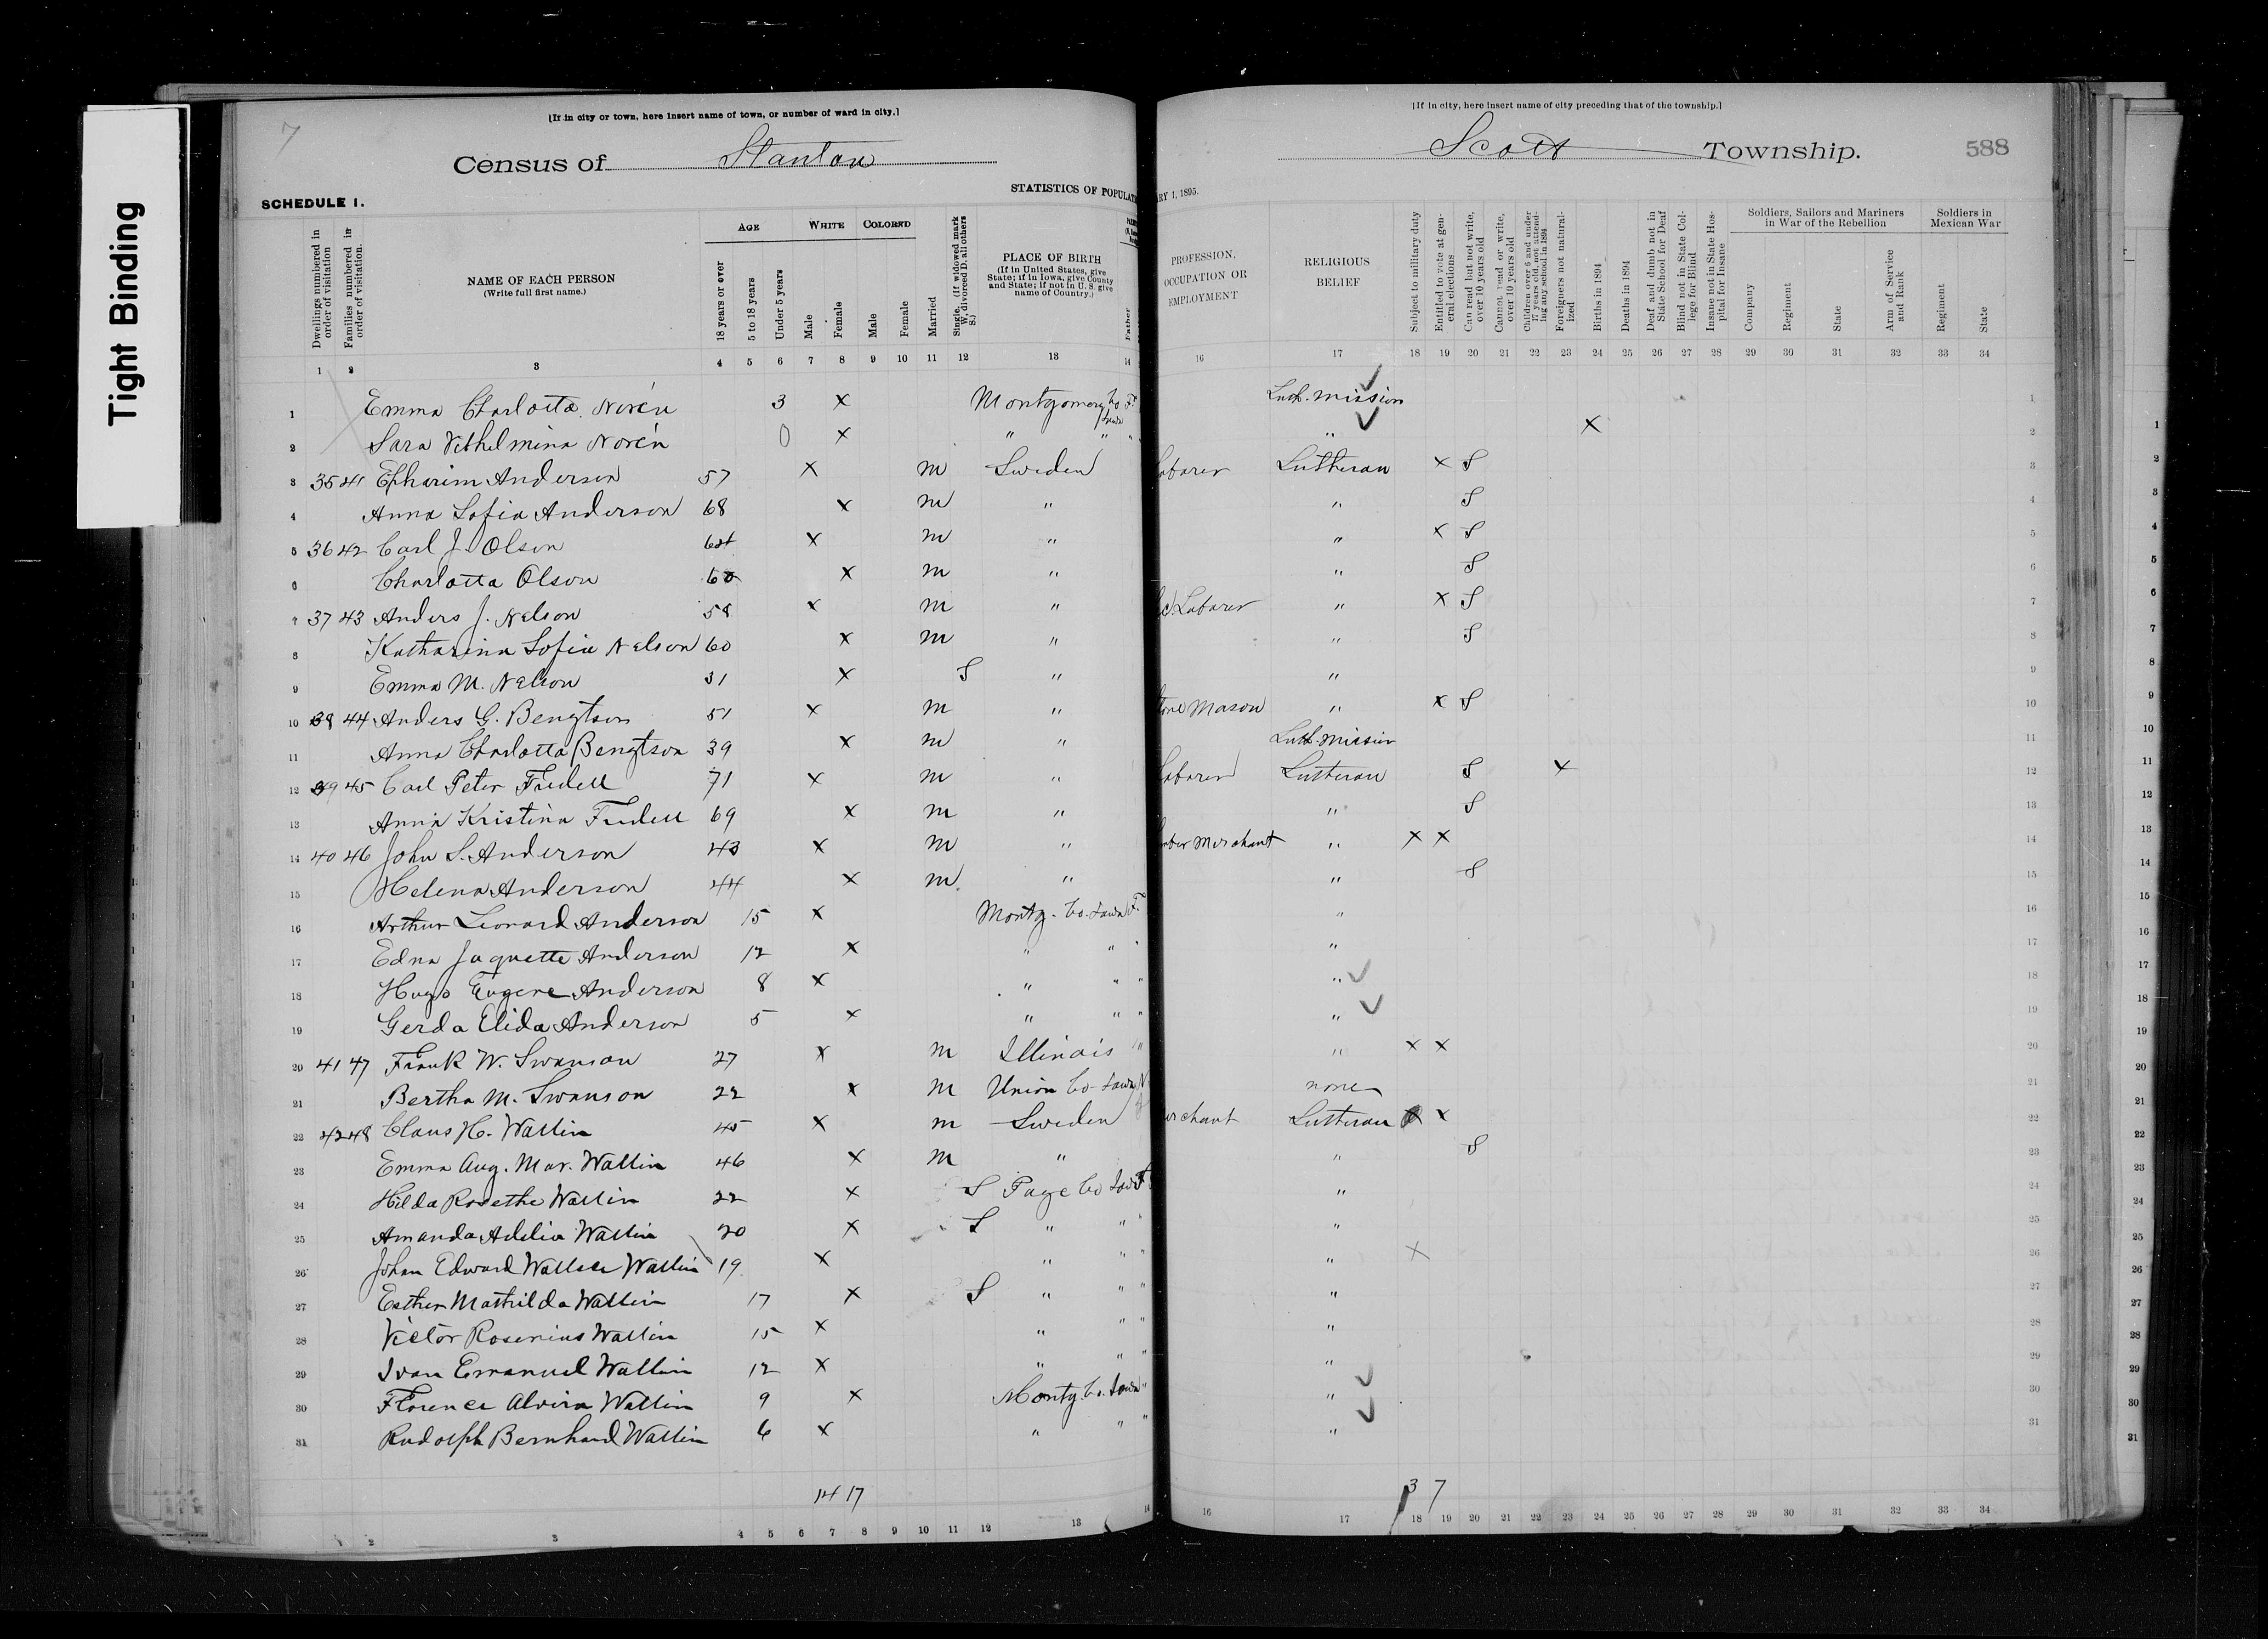 Tight Binding
7
[If in city or town, here insert name of town, or number of ward in city.]
Census of Stanton
SCHEDULE 1.
STATISTICS OF POPULAT
[If in city, here insert name of city preceding that of the township.]
Scott Township.
588
ARY 1, 1895.
Dwellings numbered in order of visitation
Families numbered in order of visitation.
NAME OF EACH PERSON
(Write full first name.)
AGE
18 years or over
5 to 18 years
Under 5 years
WHITE
Male
Female
COLORED
Male
Female
Married
Single. (If widowed mark W, divorced D, all others S.)
PLACE OF BIRTH
(If in United States, give State; if in Iowa, give County and State; if not in U. S. give name of Country.)
Father
PROFESSION, OCCUPATION OR EMPLOYMENT
RELIGIOUS BELIEF
Subject to military duty
Entitled to vote at general elections
Can read but not write, over 10 years old
Cannot read or write, over 10 years old
Children over 5 and under 17 years old, not attending any school in 1894
Foreigners not naturalized
Births in 1894
Deaths in 1894
Deaf and dumb not in State School for Deaf
Blind not in State College for Blind
Insane not in State Hospital for Insane
Soldiers, Sailors and Mariners in War of the Rebellion
Company
Regiment
State
Arm of Service and Rank
Soldiers in Mexican War
Regiment
State
1 2 3 4 5 6 7 8 9 10 11 12 13 14 16 17 18 19 20 21 22 23 24 25 26 27 28 29 30 31 32 33 34
1 Emma Charlotta Norén 3 X Montgomery Co Iowa F. Luth. mission 1
2 Sara Vilhelmina Norén 0 X " " " " X 2
3 35 41 Epharim Anderson 57 X m Sweden Laborer Lutheran X S 3
4 Anna Sofia Anderson 68 X m " " S 4
5 36 42 Carl J. Olson 64 X m " " X S 5
6 Charlotta Olson 60 X m " " S 6
7 37 43 Anders J. Nelson 58 X m " Laborer " X S 7
8 Katharina Sofia Nelson 60 X m " " S 8
9 Emma M. Nelson 31 X S " " 9
10 38 44 Anders G. Bengtson 51 X m " tone Mason " X S 10
11 Anna Charlotta Bengtson 39 X m " Luth. Mission 11
12 39 45 Carl Peter Fridell 71 X m " Laborer Lutheran S X 12
13 Anna Kristina Fridell 69 X m " " S 13
14 40 46 John S. Anderson 43 X m " mber Merchant " X X 14
15 Helena Anderson 44 X m " " S 15
16 Arthur Leonard Anderson 15 X Montg. Co. Iowa F. " 16
17 Edna Jaquette Anderson 12 X " " " " 17
18 Hugo Eugene Anderson 8 X " " " " 18
19 Gerda Elida Anderson 5 X " " " " 19
20 41 47 Frank W. Swanson 27 X m Illinois " " X X 20
21 Bertha M. Swanson 22 X m Union Co. Iowa N none 21
22 42 48 Claus H. Wallin 45 X m Sweden erchant Lutheran X X 22
23 Emma Aug. Mar. Wallin 46 X m " " S 23
24 Hilda Rosethe Wallin 22 X S Page Co Iow F " 24
25 Amanda Adelia Wallin 20 X S " " " " 25
26 Johan Edward Wallace Wallin 19 X " " " " X 26
27 Esther Mathilda Wallin 17 X S " " " " 27
28 Victor Rosenius Wallin 15 X " " " " 28
29 Ivan Emanuel Wallin 12 X " " " " 29
30 Florence Alvira Wallin 9 X Montg. Co. Iowa " " 30
31 Rudolph Bernhard Wallin 6 X " " " " 31
14 17 3 7
2 3 4 5 6 7 8 9 10 11 12 13 14 16 17 18 19 20 21 22 23 24 25 26 27 28 29 30 31 32 33 34